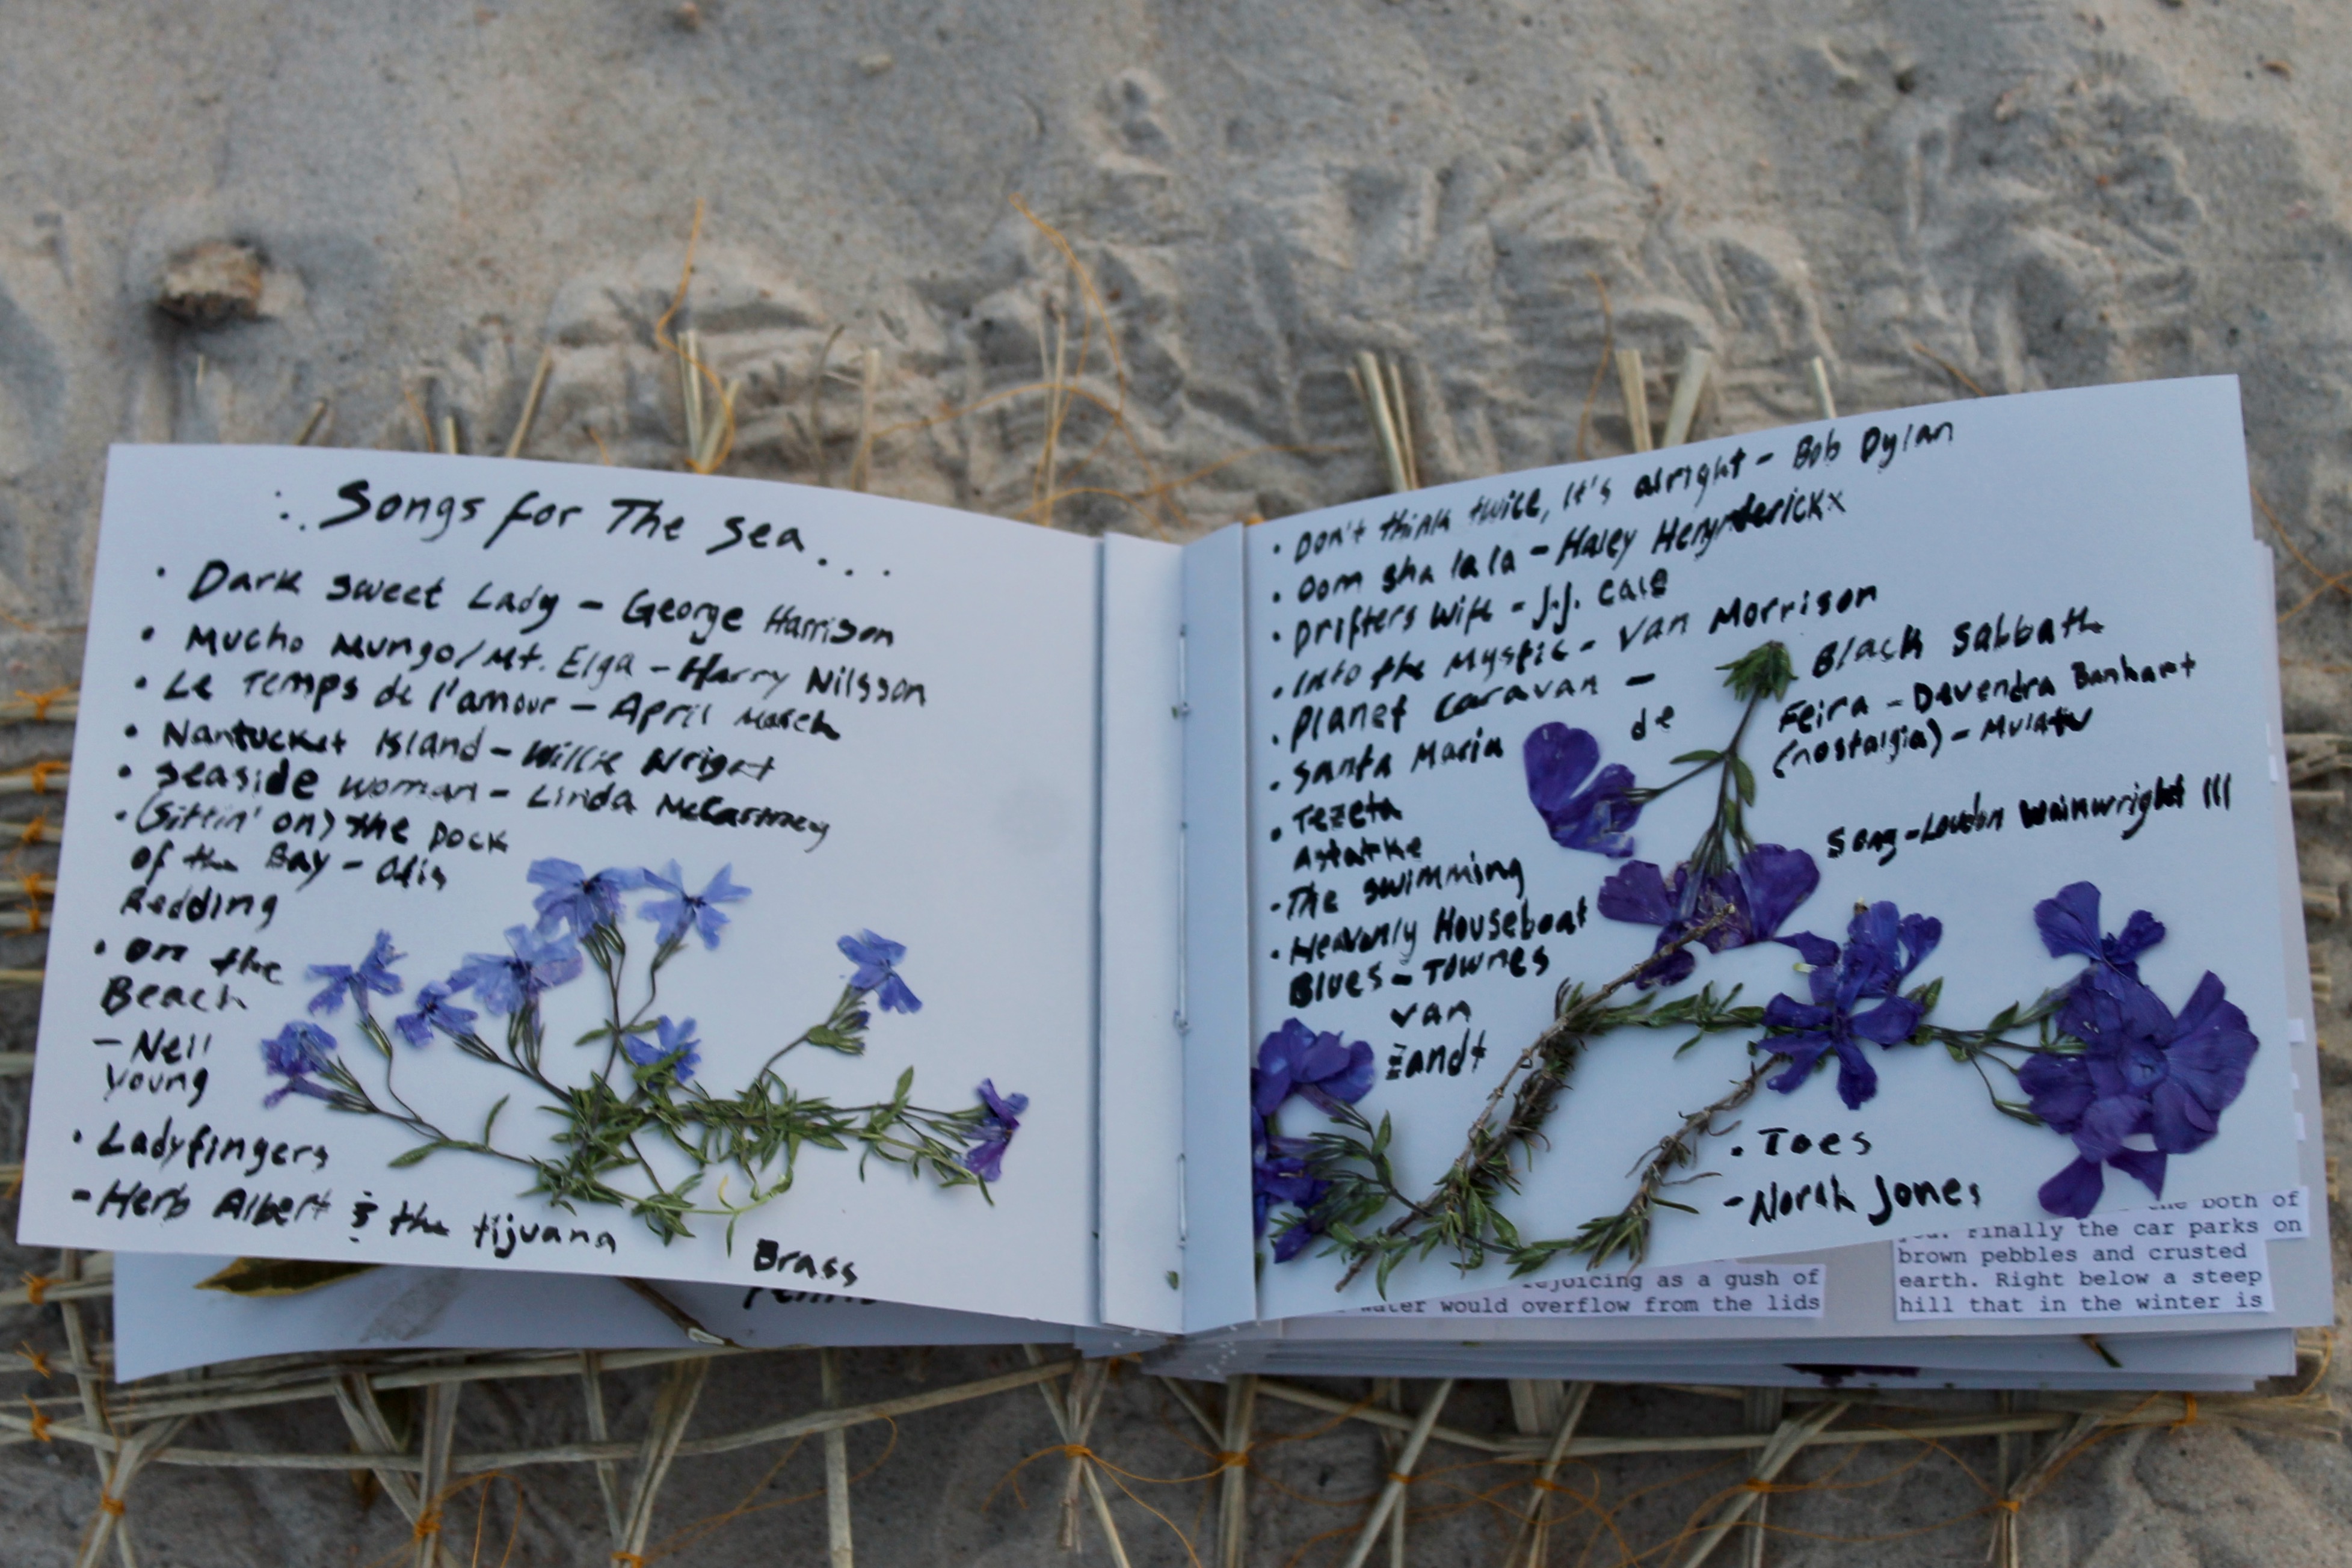 Songs for The Sea...
• Dark Sweet Lady - George Harrison
• Mucho Mungo/Mt. Elga - Harry Nilsson
• Le Temps de l'amour - April March
• Nantucket Island - Willie Wright
• Seaside Woman - Linda McCartney
• (Sittin' on) the Dock
of the Bay - Otis
Redding
• On the
Beach
- Neil
Young
• Ladyfingers
- Herb Albert & the tijuana
Brass
• Don't think twice, It's alright - Bob Dylan
• Oom sha la la - Haley Heynderickx
• Drifters Wife - J.J. Cale
• Into the Mystic - Van Morrison
• Planet Caravan - Black Sabbath
• Santa Maria de Feira - Devendra Banhart
• Tezeta (nostalgia) - Mulatu
Astatke
• The Swimming Song - Loudon Wainwright III
• Heavenly Houseboat
Blues - Townes
Van
Zandt
• Toes
- Norah Jones
the both of
you. Finally the car parks on
brown pebbles and crusted
earth. Right below a steep
hill that in the winter is
rejoicing as a gush of
water would overflow from the lids